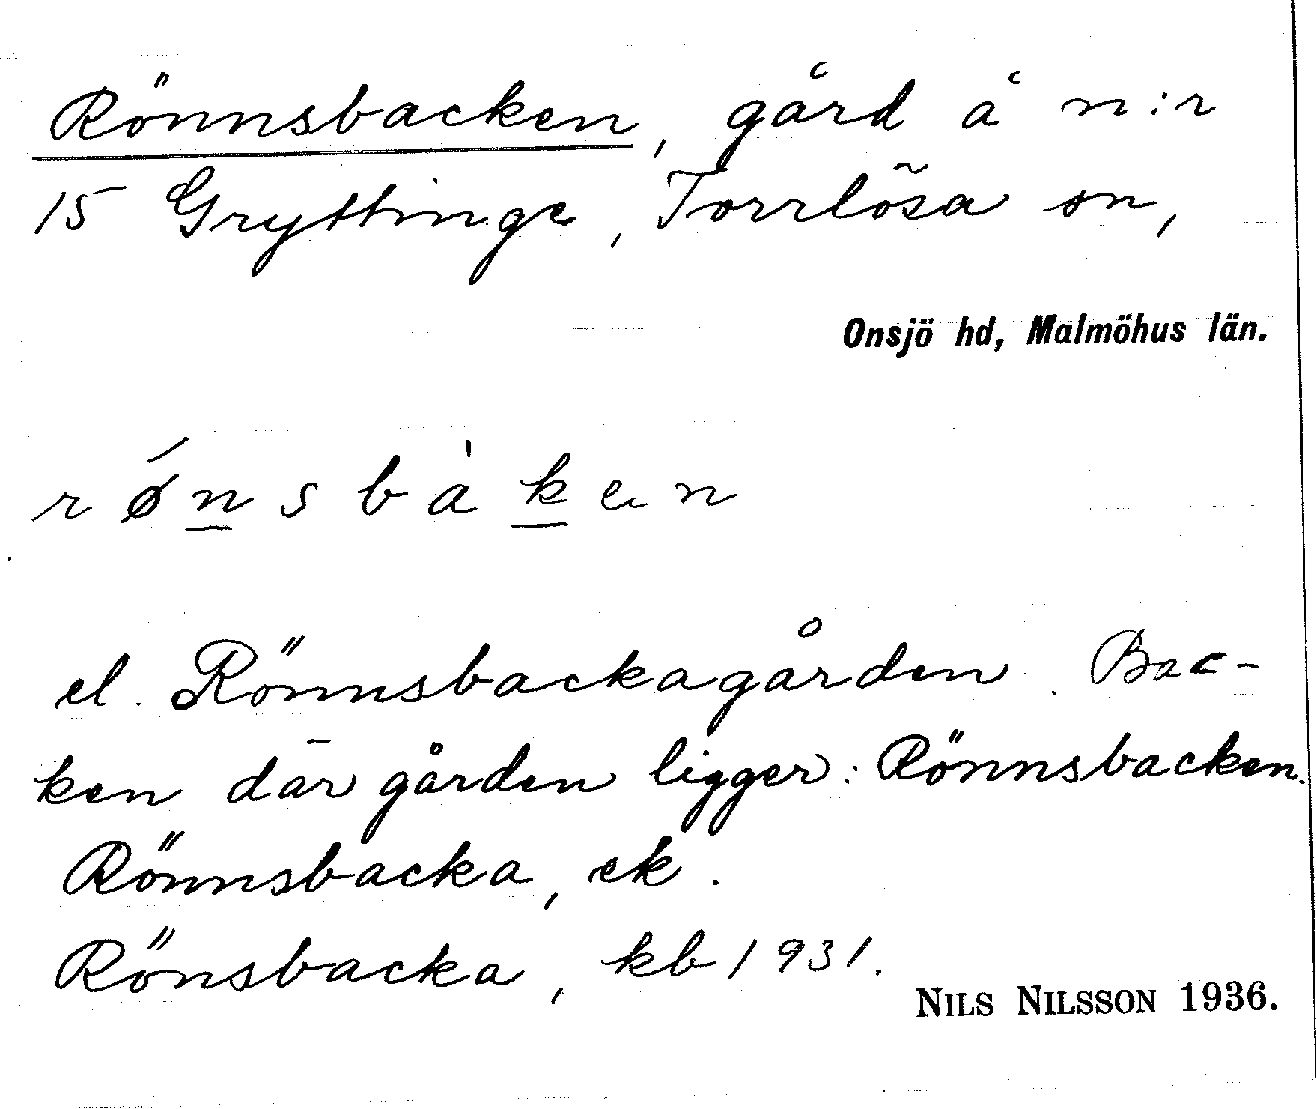 Rönnsbacken, gård å n:r
15 Gryttinge, Torrlösa sn,
Onsjö hd, Malmöhus län.
rǿnsbàken
el. Rönnsbackagården. Bac-
ken där gården ligger: Rönnsbacken.
Rönnsbacka, ek.
Rönsbacka, kb 1931.
NILS NILSSON 1936.